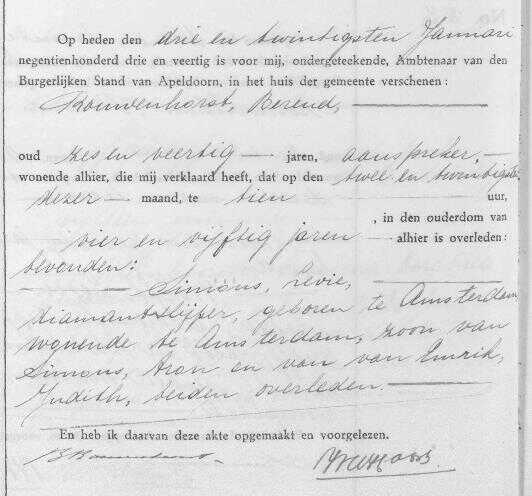 Op heden den drie en twintigsten Januari
negentienhonderd drie en veertig is voor mij, ondergeteekende, Ambtenaar van den
Burgerlijken Stand van Apeldoorn, in het huis der gemeente verschenen:
Rouwenhorst, Berend,
oud zes en veertig jaren, aanspreker,
wonende alhier, die mij verklaard heeft, dat op den twee en twintigste
dezer maand, te tien uur,
, in den ouderdom van
vier en vijftig jaren alhier is overleden:
bevonden:
Simons, Levie,
diamantslijper, geboren te Amsterdam
wonende te Amsterdam, zoon van
Simons, Aron en van van Emrik,
Judith, beiden overleden.
En heb ik daarvan deze akte opgemaakt en voorgelezen.